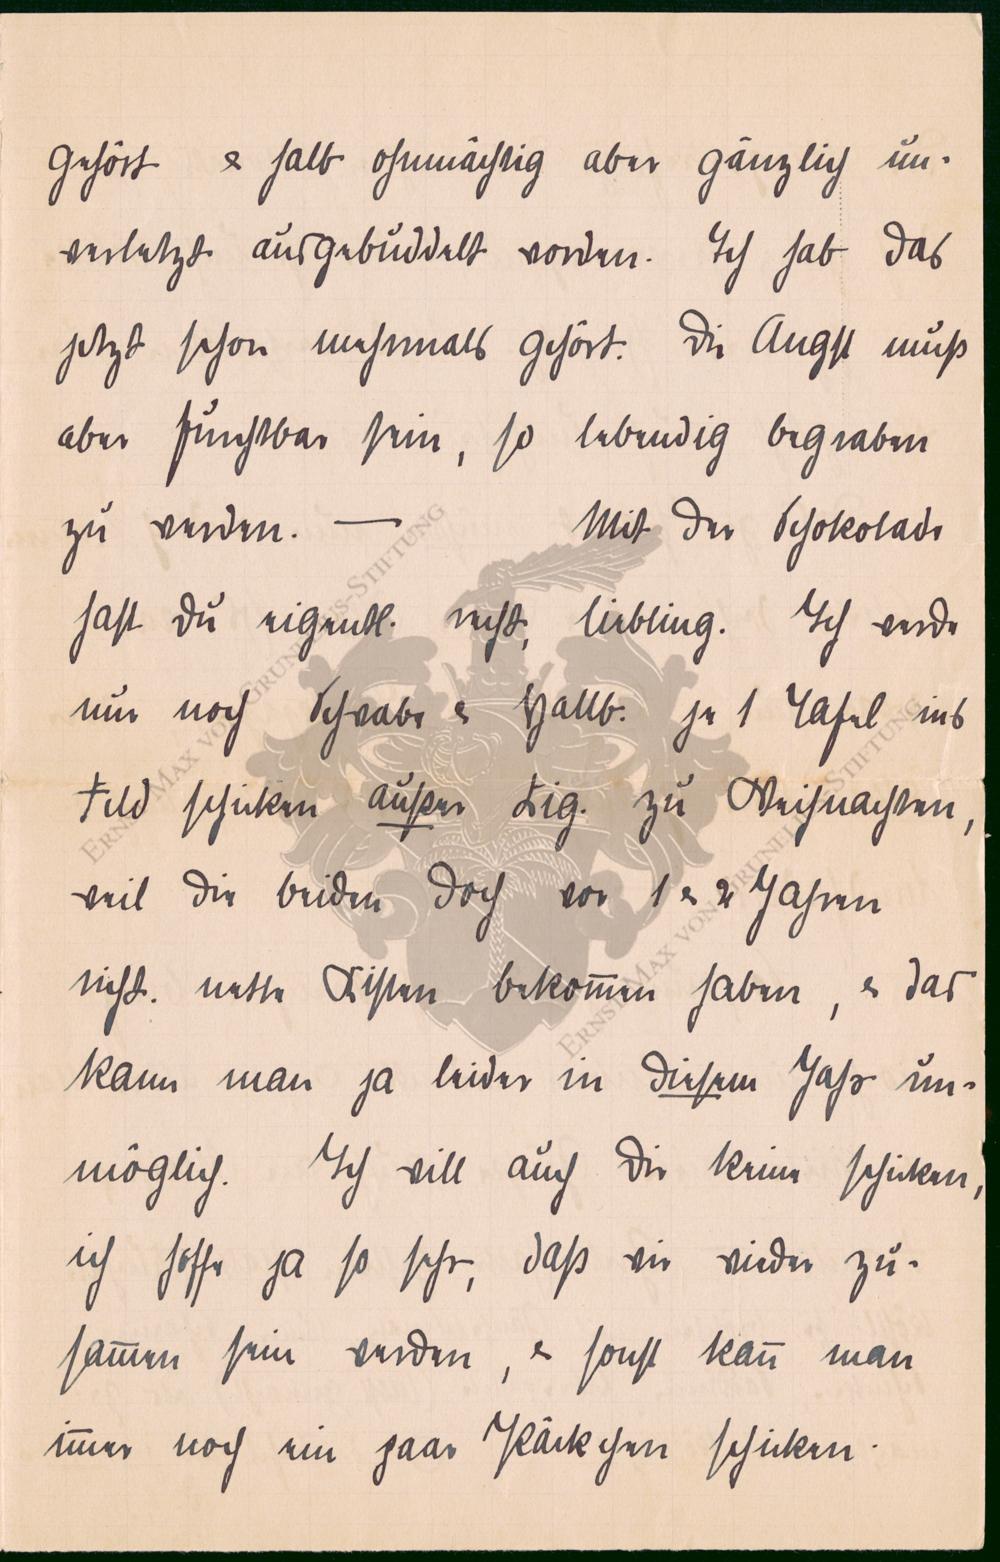 gehört & halb ohnmächtig aber gänzlich un-
verletzt ausgebuddelt worden. Ich hab das
jetzt schon mehrmals gehört. Die Angst muß
aber furchtbar sein, so lebendig begraben
zu werden. — Mit der Schokolade
hast Du eigentl. recht, Liebling. Ich werde
nur noch Schwabe & Hallb. je 1 Tafel ins
Feld schicken außer Zig. zu Weihnachten,
weil die beiden doch vor 1 & 2 Jahren
recht nette Kisten bekom̅en haben, & das
kann man ja leider in diesem Jahr un-
möglich. Ich will auch Dir keine schicken,
ich hoffe ja so sehr, daß wir wieder zu-
sam̅en sein werden, & sonst kan̅ man
im̅er noch ein paar Päckchen schicken.
ERNST MAX VON GRUNELIUS-STIFTUNG
ERNST MAX VON GRUNELIUS-STIFTUNG